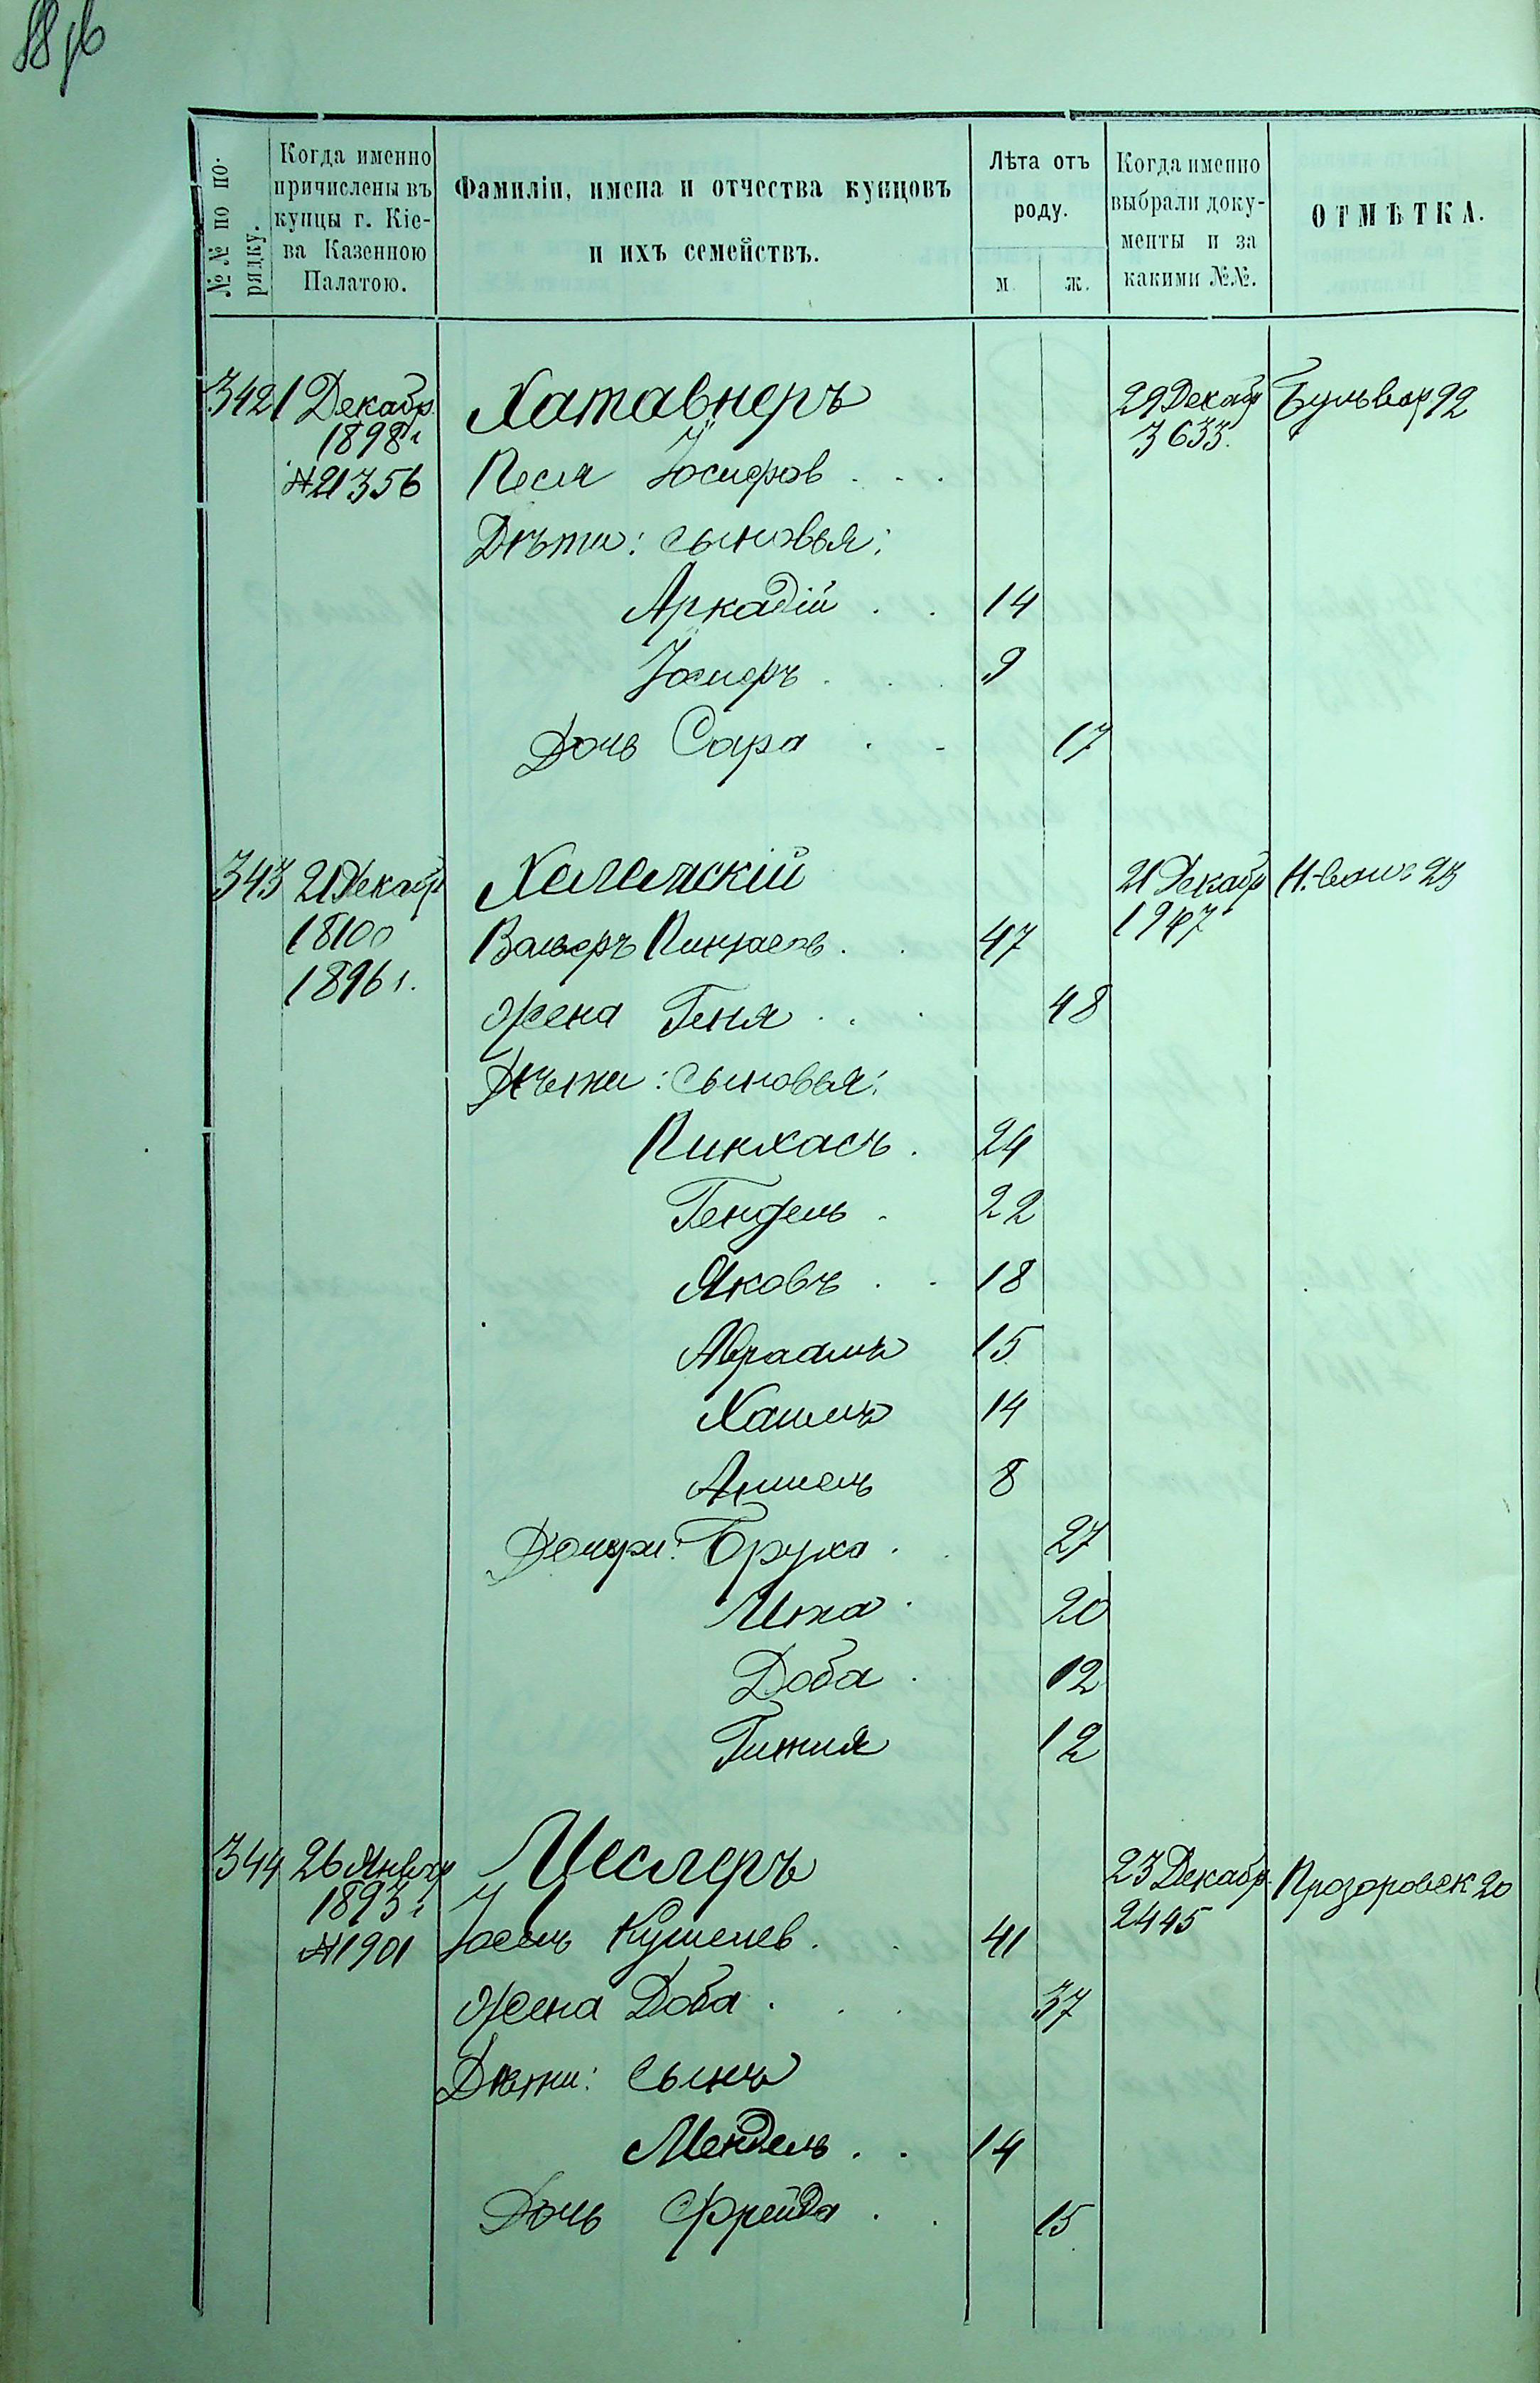 №№ по по-
рядку.
Когда именно
причислены въ
купцы г. Кіе-
ва Казенною
Палатою.
Фамиліи, имена и отчества купцовъ
и ихъ семействъ.
Лѣта отъ
роду.
м. ж.
Когда именно
выбрали доку-
менты и за
какими №№.
ОТМѢТКА.
342 1 Декабр.
1898 г
№21356
Хатавнеръ
29 Декабр
3633.
Бульвар 92
Песя Іосифов
Дѣти: сыновья:
Аркадій 14
Іосифъ 9
Дочь Сара 17
343 21 Декабр
18100
1896 г.
21 Декабр
1947
23
Вольфъ Пинхасов 47
Жена Геня 48
Дѣти: сыновья:
Пинхасъ 24
Гендель 22
Яковъ 18
Авраамъ 15
Хаимъ 14
Аншель 8
Дочери: Бруха 27
Ита 20
Доба 12
12
344 26 Январ
1893 г
№1901
23 Декабр.
2445
Прозоровск 20
Іосель Кушелев 41
Жена Доба 37
Дѣти: Сынъ
Мендель 14
Дочь Фрейда 15